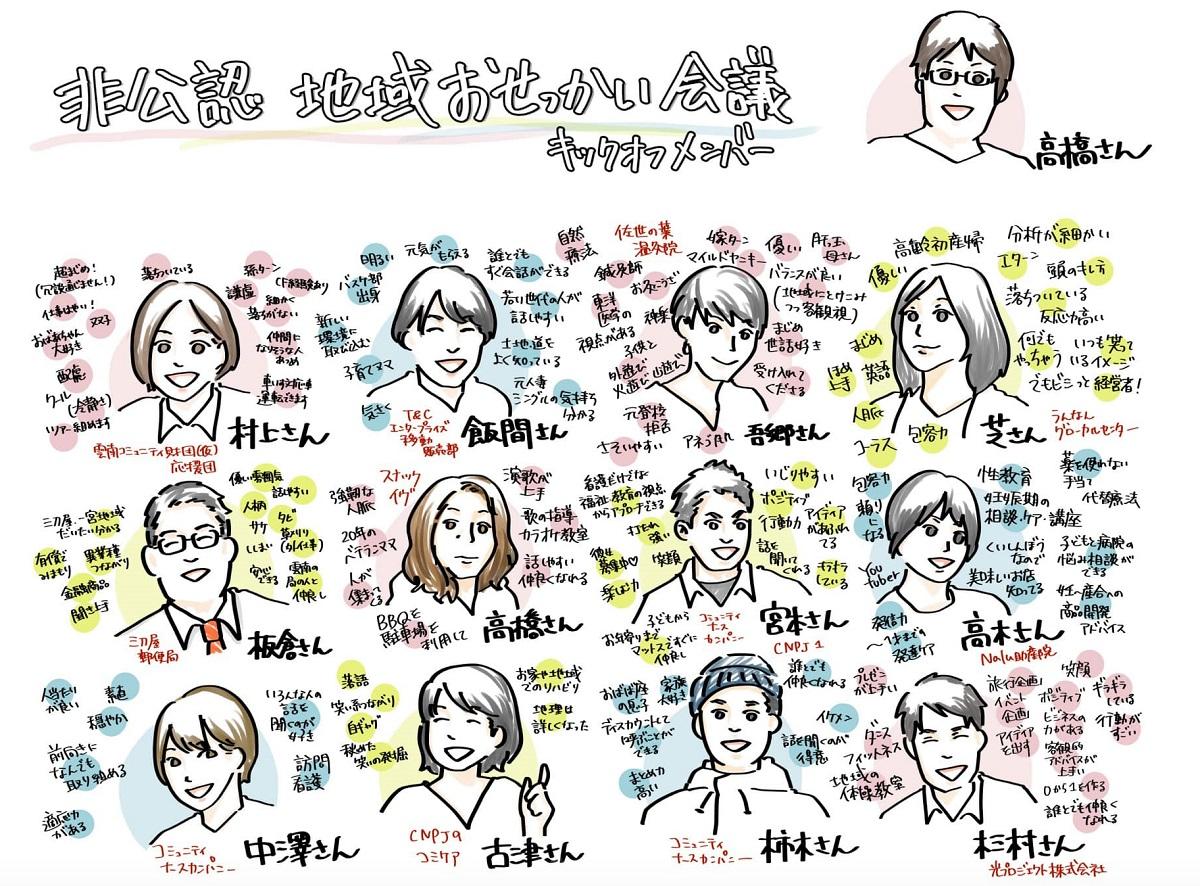 非公認 地域おせっかい会議
キックオフメンバー
高橋さん
超まじめ!
(冗談通じません!)
仕事はやい!
双子
おばあちゃん
大好き
配慮
クール(冷静さ)
ツアー組めます
落ちついている
孫ターン
謙虚
細かく
落ちがない
仲間に
なりそうな人
あつめ
運転できます
村上さん
雲南コミュニティ財団(仮)
応援団
明るい
元気がもらえる
バスケ部
出身
誰とでも
すぐ会話ができる
新しい
環境に
取り込む
子育てママ
気さく
若い世代の人が
話しやすい
土地、道を
よく知っている
元人妻
シングルの気持ち
分かる
T&C
エンタープライズ
移動
販売部
飯間さん
自然
療法
佐世の葉
温灸院
鍼灸師
お灸
東洋
医学の
視点がある
神楽
子供と
外遊び
火遊び
山遊び
元登校
拒否
さそいやすい
アネゴ肌
嫁ターン
マイルドヤンキー
優しい
肝っ玉
母さん
バランスが良い
(地域にとけこみ
つつ客観視)
まじめ
世話好き
受け入れて
くださる
吾郷さん
高齢初産婦
優しい
まじめ
ほめ
上手
英語
人脈
コーラス
包容力
分析が細かい
Iターン
頭のキレ方
落ちついている
反応が高い
何でも
やっちゃう
いつも笑って
いるイメージ
でもビシっと経営者!
芝さん
うんなん
グローカルセンター
三刀屋、一宮地域
だいたい分かる
有償で
みまもり
異業種
つながり
金融商品
聞き上手
優しい雰囲気
話しやすい
人柄
サケ
タビ
草刈り
(外仕事)
ししまい
安心
できる
雲南の
局の人と
仲良し
三刀屋
郵便局
板倉さん
スナック
イヴ
強靭な
人脈
20年の
ベテランママ
人が
集まってる
BBQを
駐車場を
利用して
演歌が
上手
歌の指導
カラオケ教室
話しやすい
仲良くなれる
高橋さん
看護だけでなく
福祉・教育の視点
からアプローチできる
打たれ
強い
彼女
募集中♡
笑顔
楽しむ力
子どもから
お年寄りまで
マットスですぐに
仲良し
いじりやすい
ポジティブ
行動力
アイディア
があふれ
てる
話を
聞いて
くれる
キラキラ
している
コミュニティ
ナース
カンパニー
宮本さん
CNPJ1
包容力
頼り
になる
You
tuber
発信力
性教育
妊娠期の
相談・ケア・講座
くいしんぼう
なので
美味しいお店
知ってる
薬を使わない
手当て
代替療法
子ども病院の
悩み相談が
できる
妊・産合への
商品開発
アドバイス
高木さん
Nalu助産院
人当たり
が良い
素直
穏やか
前向きに
なんでも
取り始める
適応力
がある
いろんな人の
話を
聞くのが
好き
訪問
看護
コミュニティ
ナースカンパニー
中澤さん
落語
笑い、おつながり
自ギャグ
秘めた
笑いの発掘
お家や地域
でのリハビリ
地理は
詳しくなった
CNPJ9
コミケア
古津さん
おばば座
の息子
家族
大好き
ディスカウントして
呼ぶことが
できる
まとめ力
高い
誰とでも
仲良くなれる
イケメン
話を聞くのが
得意
コミュニティ
ナースカンパニー
柿木さん
プレゼン
が上手い
ダンス
フィットネス
地域の
体操教室
旅行企画
イベント
企画
アイデア
を出す
笑顔
ポジティブ
ビジネスの
力がある
客観的
アドバイスが
上手い
0から1を作る
誰とでも仲良く
なれる
ギラギラ
している
行動が
すごい
杉村さん
光プロジェクト株式会社